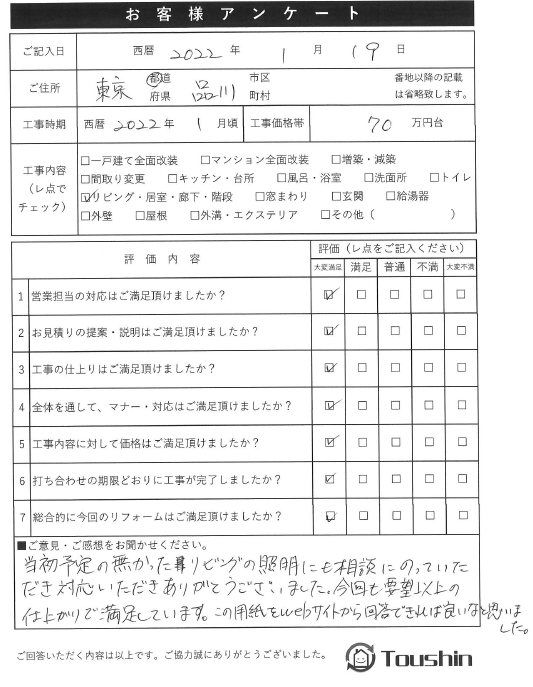 お客様アンケート
ご記入日 西暦 2022 年 1 月 19 日
ご住所 東京 都道府県 品川 市区町村 番地以降の記載は省略致します。
工事時期 西暦 2022 年 1 月頃 工事価格帯 70 万円台
工事内容（レ点でチェック）
□一戸建て全面改装 □マンション全面改装 □増築・減築
□間取り変更 □キッチン・台所 □風呂・浴室 □洗面所 □トイレ
☑リビング・居室・廊下・階段 □窓まわり □玄関 □給湯器
□外壁 □屋根 □外溝・エクステリア □その他（ ）
評価内容 評価（レ点をご記入ください）
大変満足 満足 普通 不満 大変不満
1 営業担当の対応はご満足頂けましたか？ ☑ □ □ □ □
2 お見積りの提案・説明はご満足頂けましたか？ ☑ □ □ □ □
3 工事の仕上りはご満足頂けましたか？ ☑ □ □ □ □
4 全体を通して、マナー・対応はご満足頂けましたか？ ☑ □ □ □ □
5 工事内容に対して価格はご満足頂けましたか？ ☑ □ □ □ □
6 打ち合わせの期限どおりに工事が完了しましたか？ ☑ □ □ □ □
7 総合的に今回のリフォームはご満足頂けましたか？ ☑ □ □ □ □
■ご意見・ご感想をお聞かせください。
当初予定の無かったリビングの照明にも相談にのっていた
だき対応いただきありがとうございました。今回も要望以上の
仕上がりで満足しています。この用紙をwebサイトから回答できれば良いなと思いま
した。
ご回答いただく内容は以上です。ご協力誠にありがとうございました。
Toushin